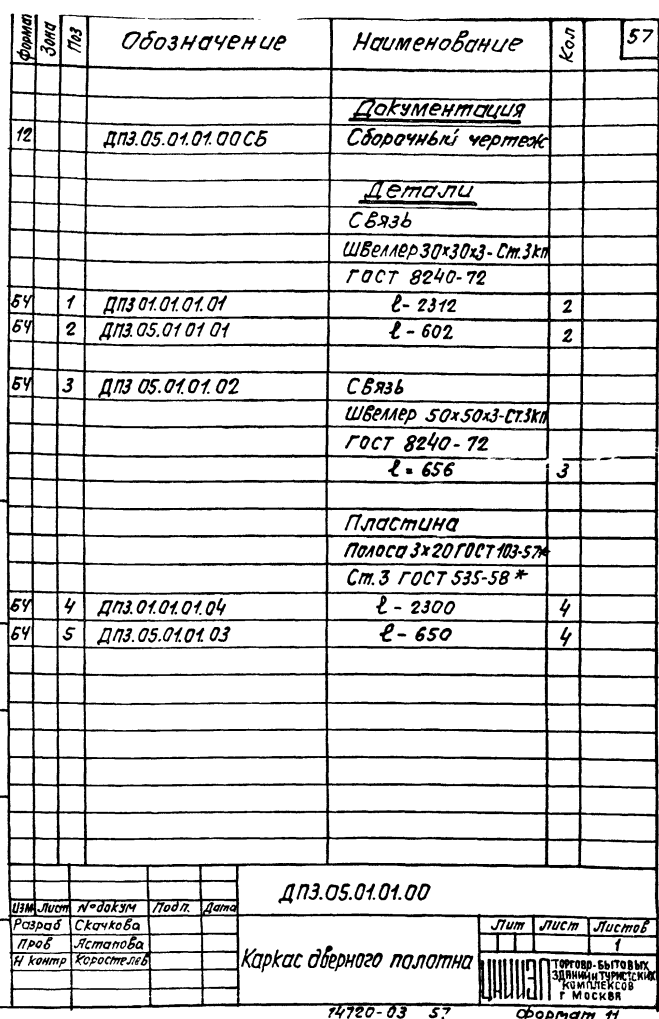 Формат Зона Поз Обозначение Наименование Кол 57
Документация
12 ДПЗ.05.01.01.00СБ Сборочный чертеж
Детали
Связь
Швеллер 30х30х3-Ст.3кп
гост 8240-72
БЧ 1 ДПЗ 01.01.01.01 ℓ-2312 2
БЧ 2 ДПЗ.05.01 01 01 ℓ-602 2
БЧ 3 ДПЗ 05.01.01.02 Связь
Швеллер 50х50х3-Ст.3кп
гост 8240-72
ℓ=656 3
Пластина
Полоса 3х20 ГОСТ 103-57*
Ст.3 ГОСТ 535-58*
БЧ 4 ДПЗ.01.01.01.04 ℓ-2300 4
БЧ 5 ДПЗ.05.01.01.03 ℓ-650 4
ДПЗ.05.01.01.00
Изм Лист №докум Подп. Дата
Разраб Скачкова
Пров Астапова
Н контр Коростелев
Каркас дверного полотна
Лит Лист Листов
1
ЦНИИЭП торгово-бытовых
зданий и туристских
комплексов
г Москва
14720-03 57 Формат 11